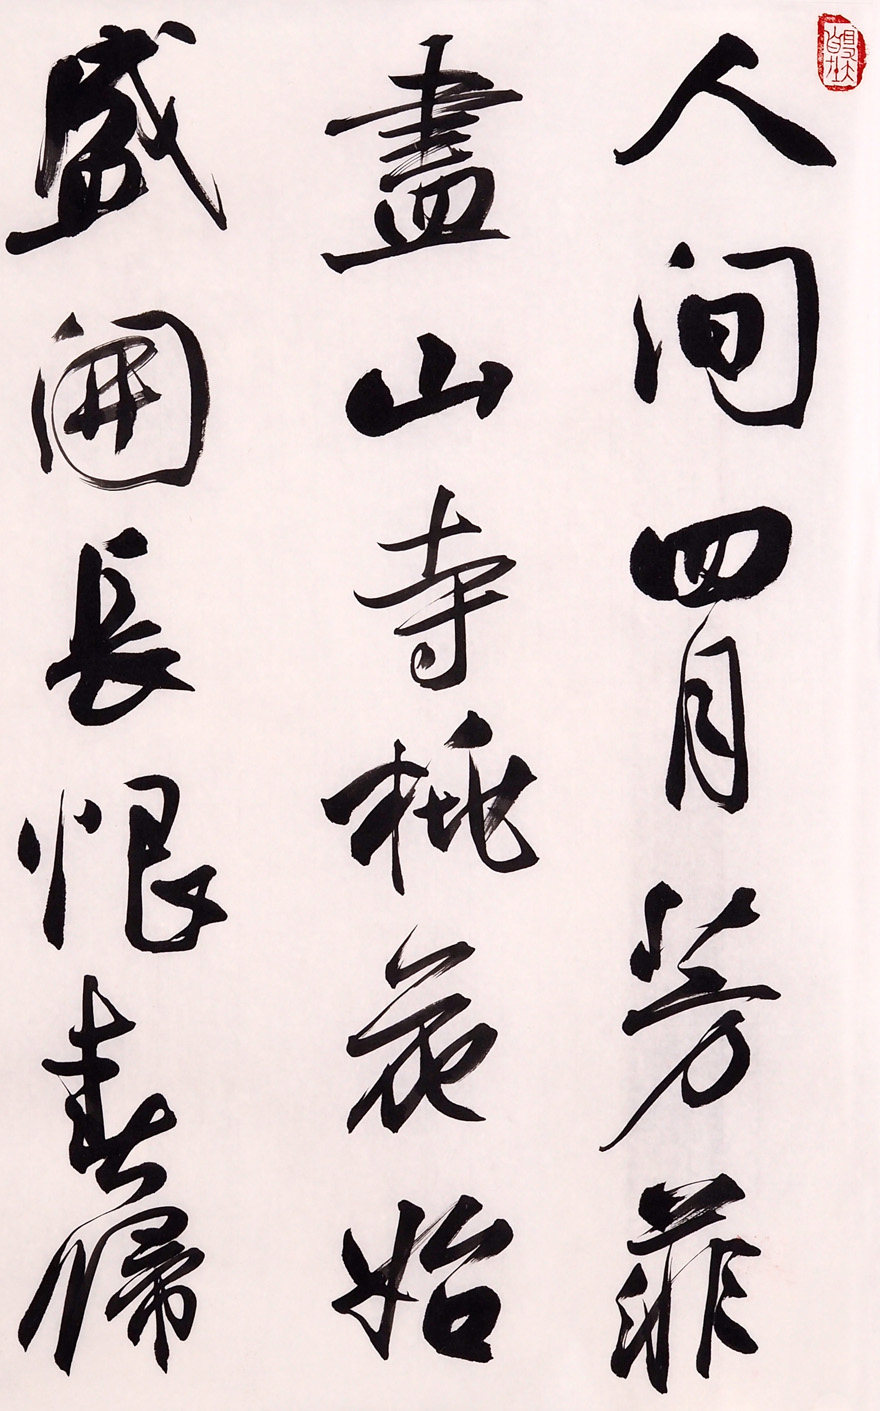 人間四月芳菲
盡山寺桃花始
盛開長恨春歸